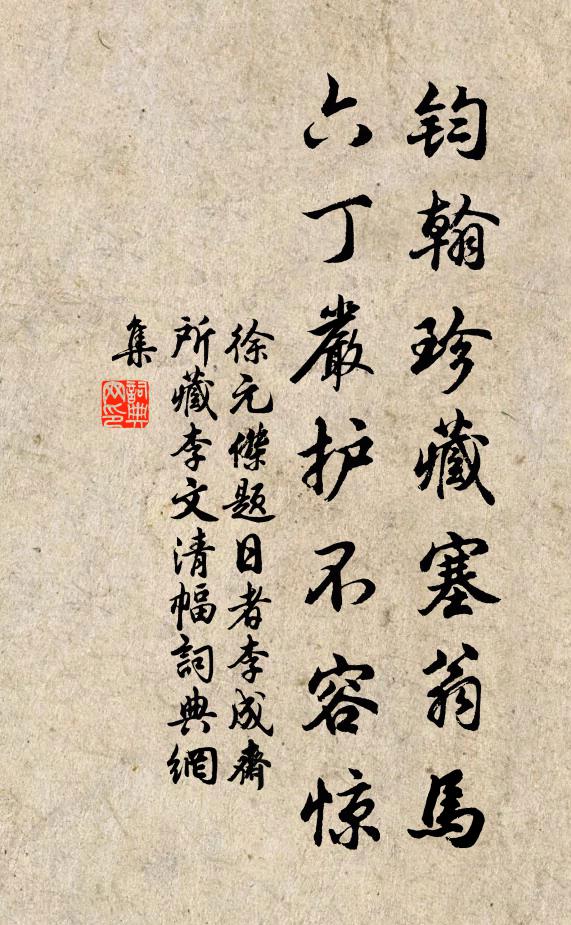 钧翰珍藏塞翁馬
六丁嚴护不容惊
徐元傑题日者李成齋
所藏李文清幅詞典網
集
詞典
网印